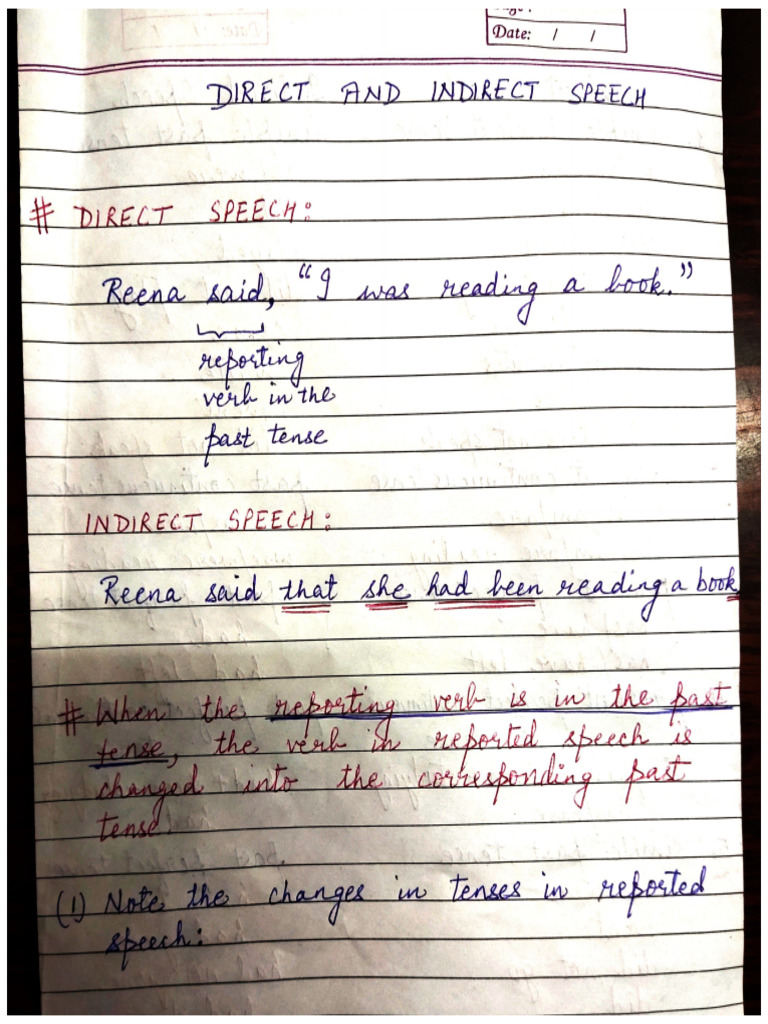 Date: / /
DIRECT AND INDIRECT SPEECH
# DIRECT SPEECH:
Reena said, "I was reading a book."
reporting
verb in the
past tense
INDIRECT SPEECH:
Reena said that she had been reading a book.
# When the reporting verb is in the past
tense, the verb in reported speech is
changed into the corresponding past
tense.
(1) Note the changes in tenses in reported
speech: